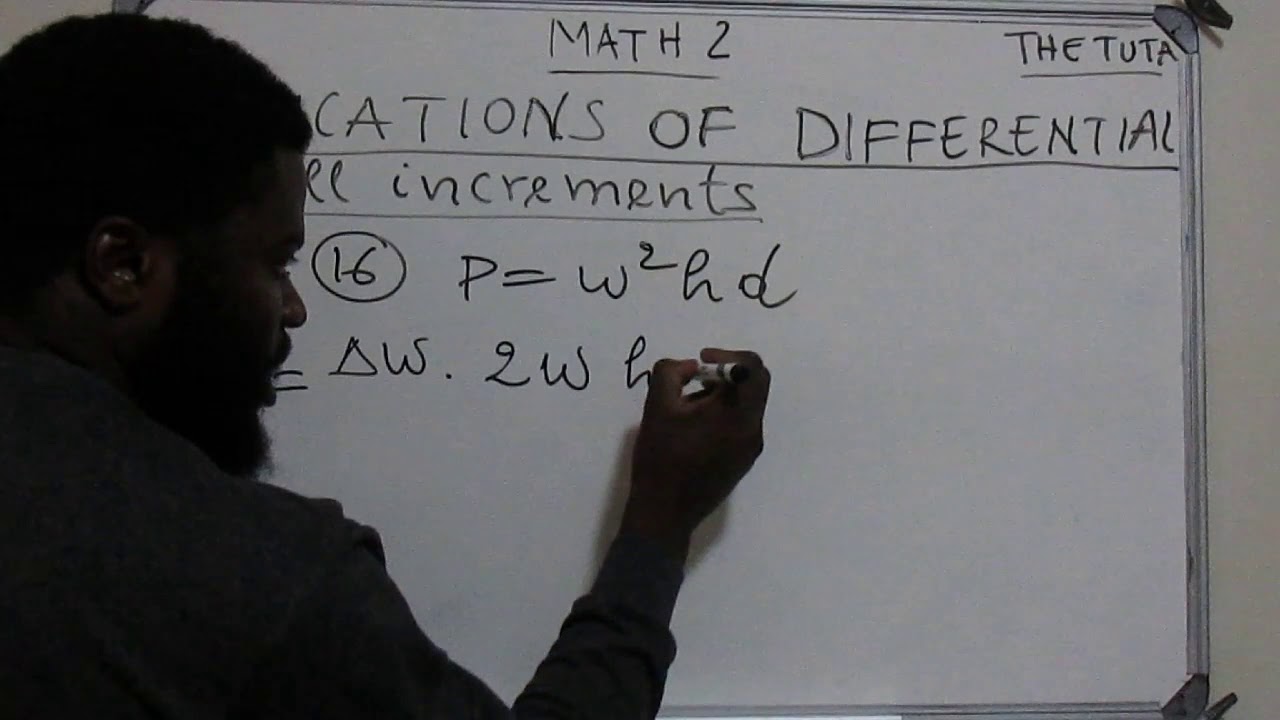 MATH 2
THE TUTA
CATIONS OF DIFFERENTIAL
ll increments
16 P = w²hd
= ΔW. 2w h